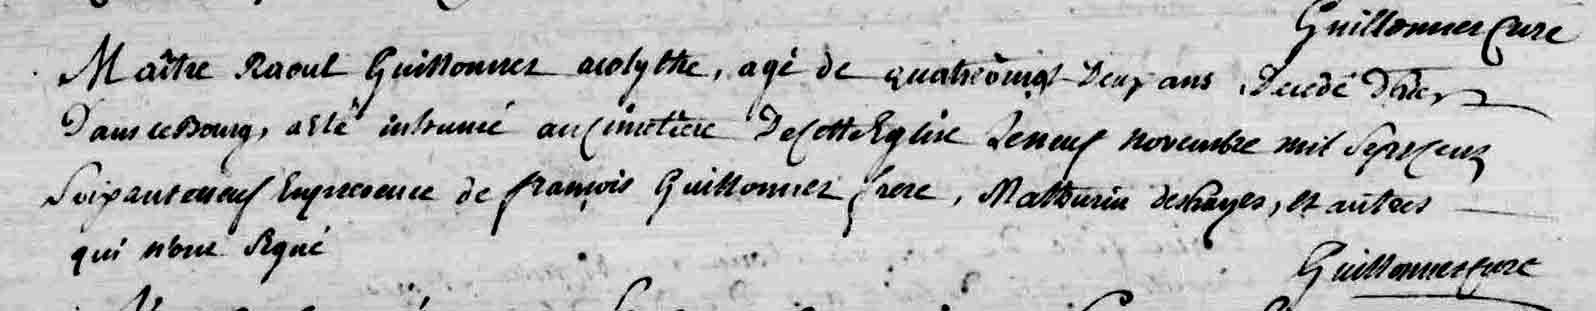 Guillonner Curé
Maître Raoul Guillonner acolythe, agé de quatrevingt Deux ans Decedé D'hier
Dans ce Bourg, a eté inhumé au Cimetiere De Cette Eglise Le neuf Novembre mil Sept Cent
Soixante neuf En presence de françois Guillonner frere, Mathurin deshayes, et autres
qui n'ont Signé
Guillonner Curé